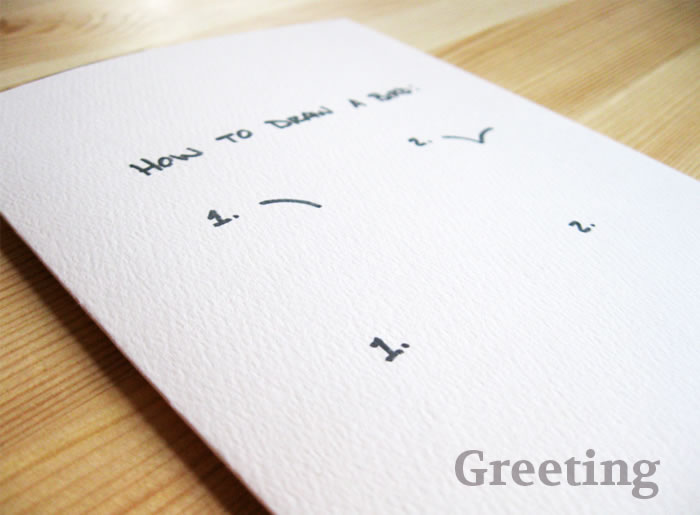 HOW TO DRAW A BIRD:
1.
2.
1.
2.
Greeting